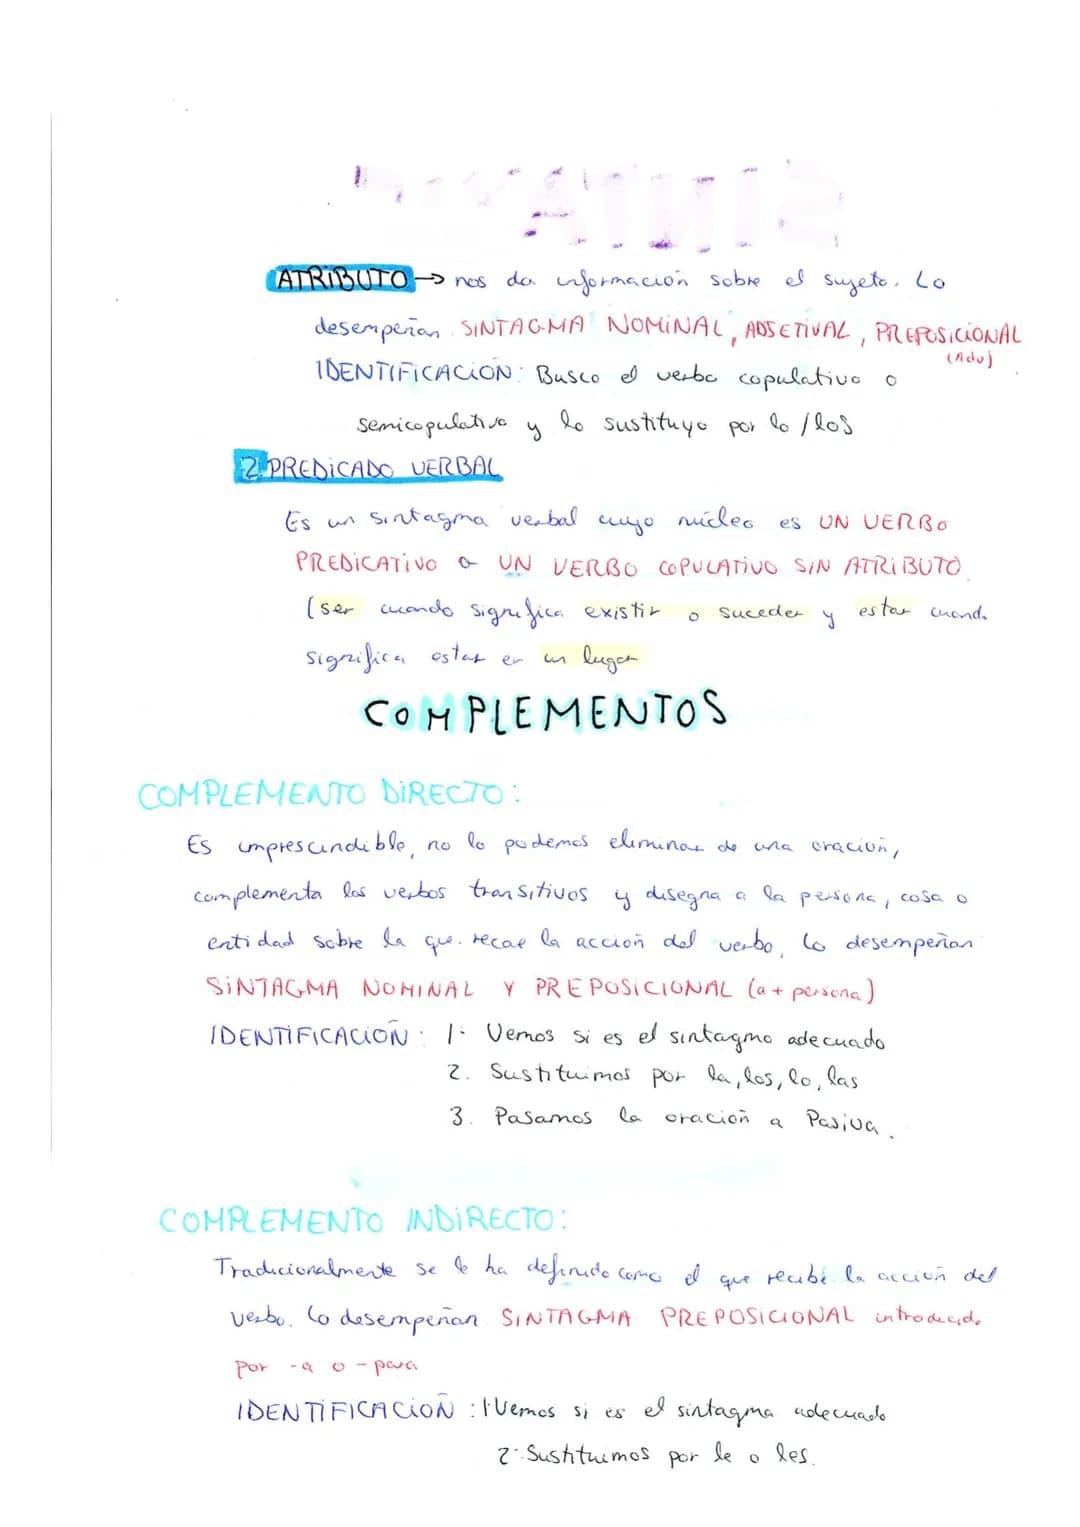 ATRIBUTO → nos da información sobre el sujeto. Lo
desempeñan SINTAGMA NOMINAL, ADJETIVAL, PREPOSICIONAL
(Adv)
IDENTIFICACIÓN: Busco el verbo copulativo o
semicopulativo y lo sustituyo por lo / los
2. PREDICADO VERBAL
Es un sintagma verbal cuyo núcleo es UN VERBO
PREDICATIVO o UN VERBO COPULATIVO SIN ATRIBUTO.
(ser cuando significa existir o suceder y estar cuando
significa estar en un lugar
COMPLEMENTOS
COMPLEMENTO DIRECTO:
Es imprescindible, no lo podemos eliminar de una oración,
complementa los verbos transitivos y disegna a la persona, cosa o
entidad sobre la que recae la acción del verbo. Lo desempeñan
SINTAGMA NOMINAL Y PREPOSICIONAL (a + persona)
IDENTIFICACIÓN: 1. Vemos si es el sintagma adecuado
2. Sustituimos por la, los, lo, las
3. Pasamos la oración a Pasiva.
COMPLEMENTO INDIRECTO:
Tradicionalmente se le ha definido como el que recibe la acción del
verbo. Lo desempeñan SINTAGMA PREPOSICIONAL introducido
por -a o -para
IDENTIFICACIÓN: 1. Vemos si es el sintagma adecuado
2. Sustituimos por le o les.